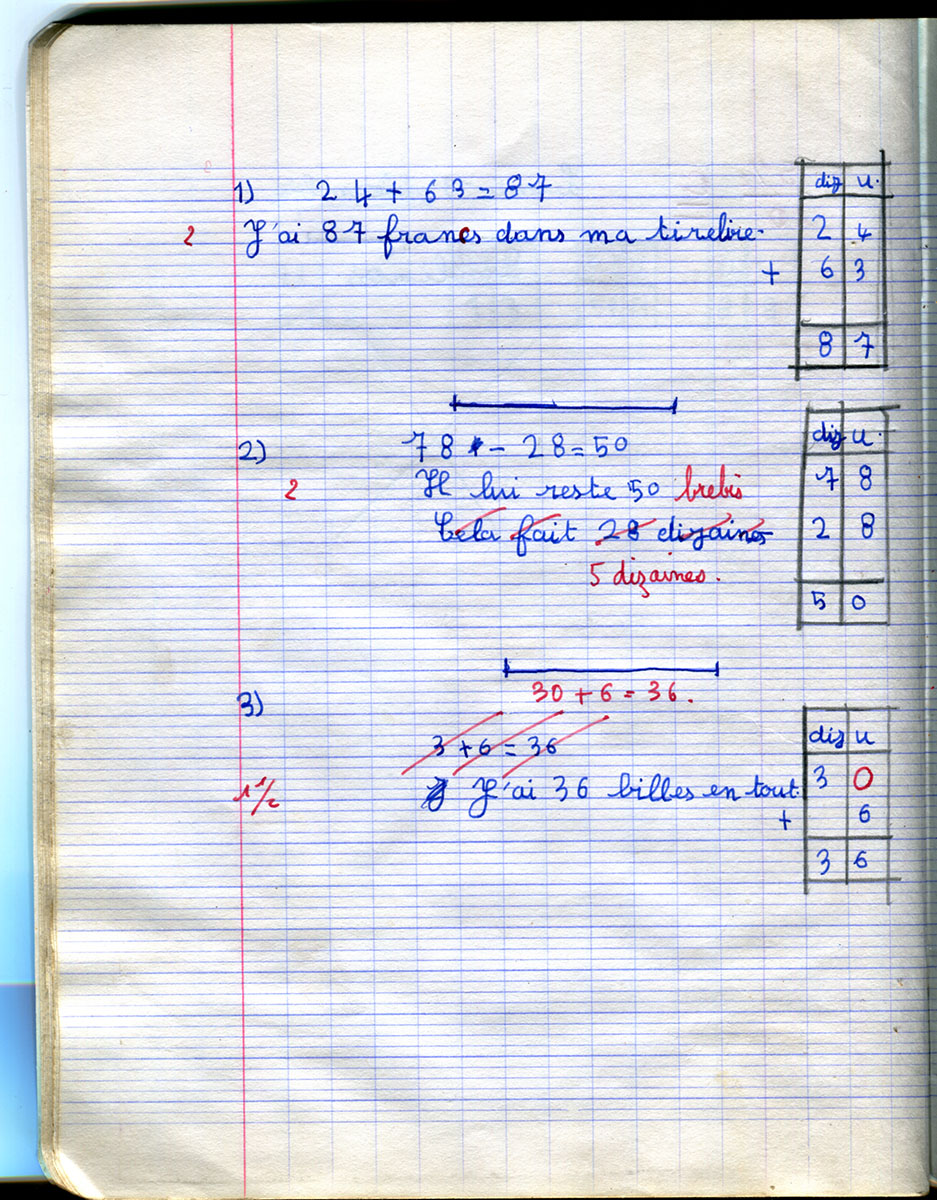 1) 24 + 63 = 87
2 J'ai 87 francs dans ma tirelire.
diz u.
2 4
+ 6 3
8 7
2) 78 - 28 = 50
2 Il lui reste 50 brebis
Cela fait 28 dizaines
5 dizaines.
diz u.
7 8
2 8
5 0
3) 30 + 6 = 36.
3 + 6 = 36
1 1/2 J'ai 36 billes en tout
diz u
3 0
+ 6
3 6